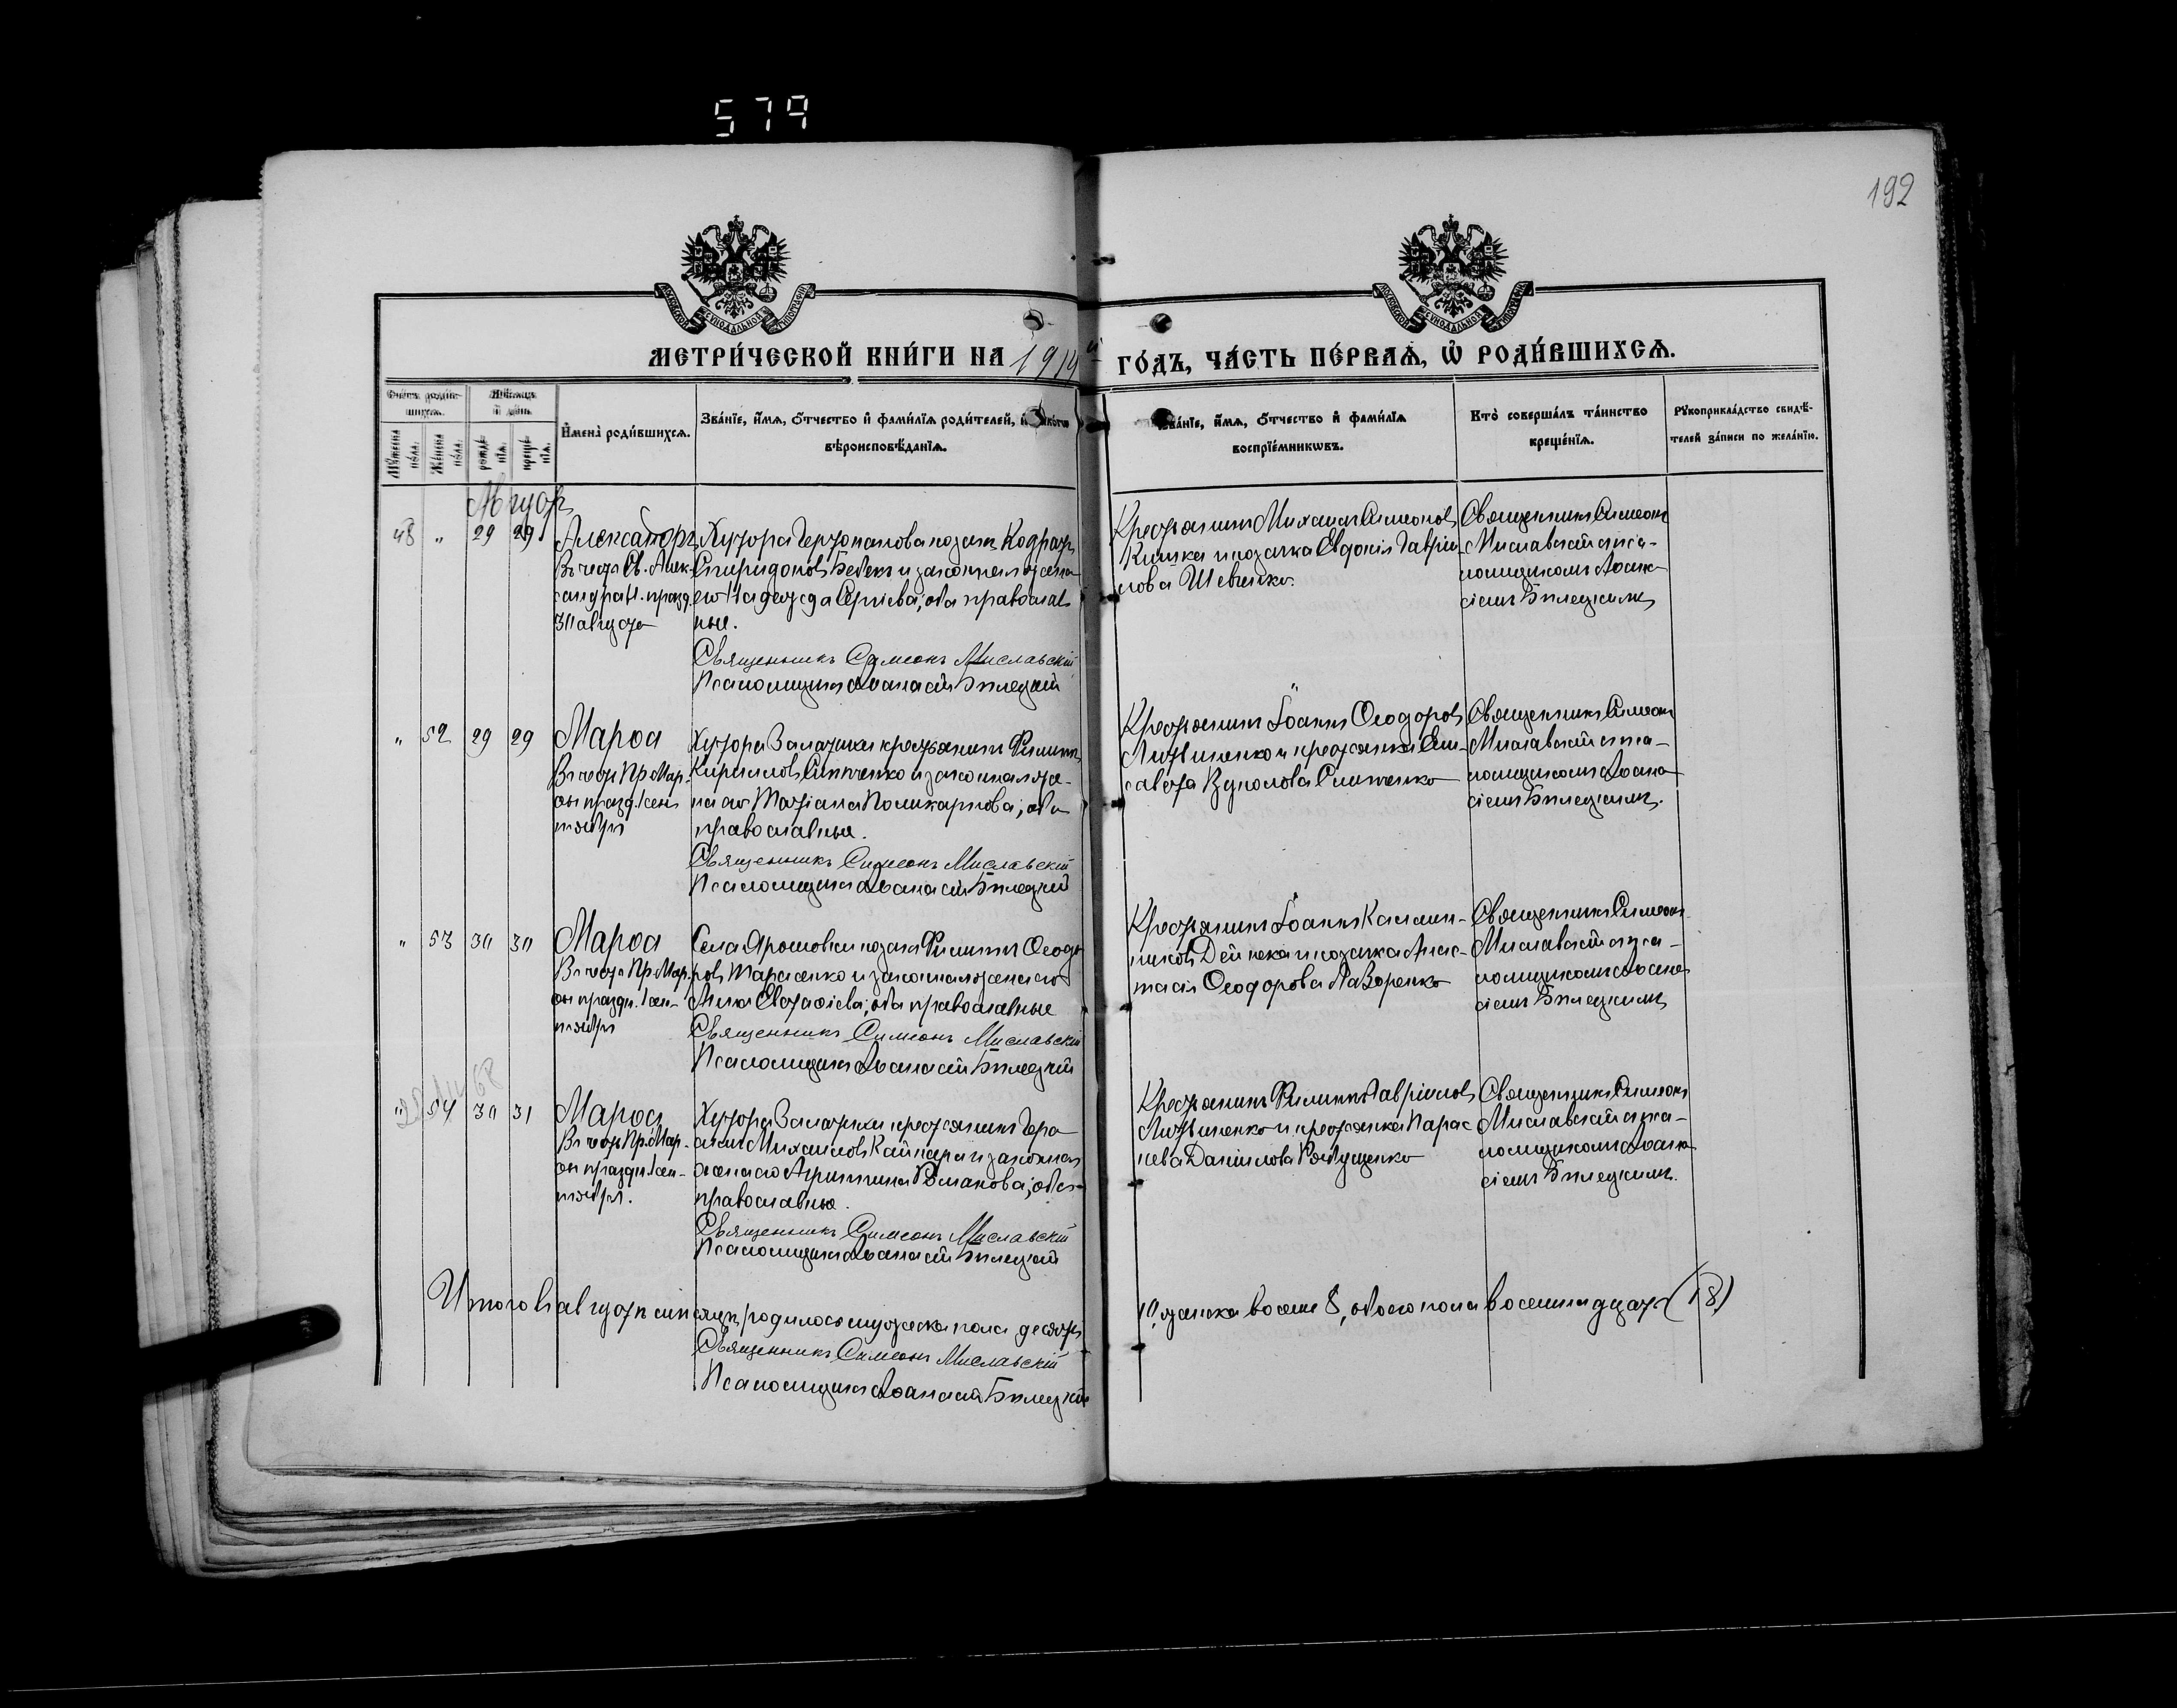 579
192
МЕТРИ́ЧЕСКОЙ КНИ́ГИ НА 1914 й ГО́ДЪ, ЧА́СТЬ ПЕ́РВАѦ, Ѡ҆ РОДИ́ВШИХСѦ.
Мꙋ́жеска по́ла.
Же́нска по́ла.
Мѣ́сѧцъ и҆ де́нь
рожде́нїѧ.
креще́нїѧ.
И҆мена̀ роди́вшихсѧ.
Зва́нїе, и҆́мѧ, ѻ҆́тчество и҆ фами́лїѧ роди́телей, и҆
вѣроисповѣ́данїѧ.
Зва́нїе, и҆́мѧ, ѻ҆́тчество и҆ фами́лїѧ
воспрїе́мникѡвъ.
Кто̀ соверша́лъ та́инство
креще́нїѧ.
Рꙋкоприкла́дство свидѣ́-
телей за́писи по жела́нїю.
Августъ
48 " 29 29 Александръ
Въ честь Св. Алек-
сандра Н. празд.
30 августа
Спиридоновъ и законная жена
его Надежда Сергіева; оба православ
ные.
Священникъ Симеонъ Миславскій
Псаломщикъ Аѳанасій Билецкій
Крестьянинъ Михаилъ Симеоновъ
и козачка Евдокія Гаврии-
лова Шевченко.
Священникъ Симеонъ
Миславскій съ пса-
ломщикомъ Аѳана-
сіемъ Билецкимъ
" 52 29 29 Марѳа
Въ честь Пр. Мар-
ѳы празд. 1 сен-
тября
Хутора крестьянинъ Филиппъ
Кирилловъ и законная же-
на его Татіана Поликарпова; оба
православные.
Священникъ Симеонъ Миславскій
Псаломщикъ Аѳанасій Билецкій
Крестьянинъ Іоаннъ Ѳеодоровъ
Литвиненко и крестьянка Ели-
савета
Священникъ Симеонъ
Миславскій съ пса-
ломщикомъ Аѳана-
сіемъ Билецкимъ.
" 53 30 30 Марѳа
Въ честь Пр. Мар-
ѳы праздн. 1 сен-
тября
Села Ярошовки козакъ Филиппъ Ѳеодо-
ровъ Тарасенко и законная жена его
Анна Евстафіева; оба православные
Священникъ Симеонъ Миславскій
Псаломщикъ Аѳанасій Билецкій
Крестьянинъ Іоаннъ Каллин-
никовъ Дейнека и козачка Анас-
тасія Ѳеодорова Лазоренко
Священникъ Симеонъ
Миславскій съ пса-
ломщикомъ Аѳана-
сіемъ Билецкимъ
" 54 30 31 Марѳа
Въ честь Пр. Мар-
ѳы праздн. 1 сен-
тября.
Хутора крестьянинъ Гера-
симъ Михаиловъ и законная
жена его Агриппина Романова; оба
православные.
Священникъ Симеонъ Миславскій
Псаломщикъ Аѳанасій Билецкій
Крестьянинъ Филиппъ Гавріиловъ
Литвиненко и крестьянка Парас-
кева Даніилова
Священникъ Симеонъ
Миславскій съ пса-
ломщикомъ Аѳана-
сіемъ Билецкимъ.
Итого въ августѣ мѣсяцѣ родилось мужеска пола десять
10, женска восемь 8, обоего пола восемнадцать (18)
Священникъ Симеонъ Миславскій
Псаломщикъ Аѳанасій Билецкій